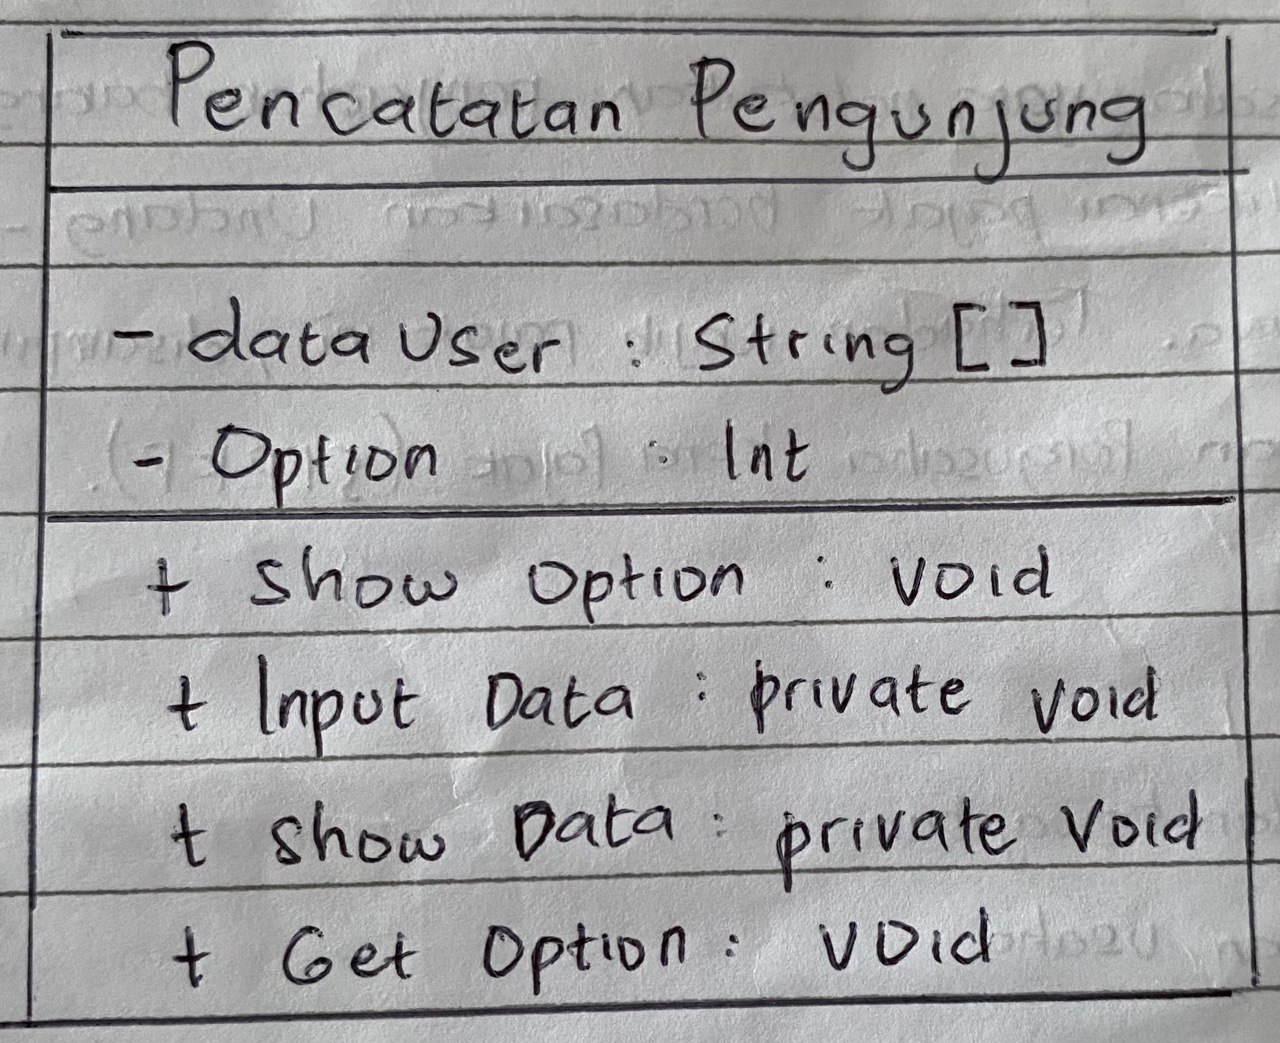 Pencatatan Pengunjung
- data User : String []
- Option : Int
+ show Option : void
+ Input Data : private void
+ show Data : private void
+ Get Option : void